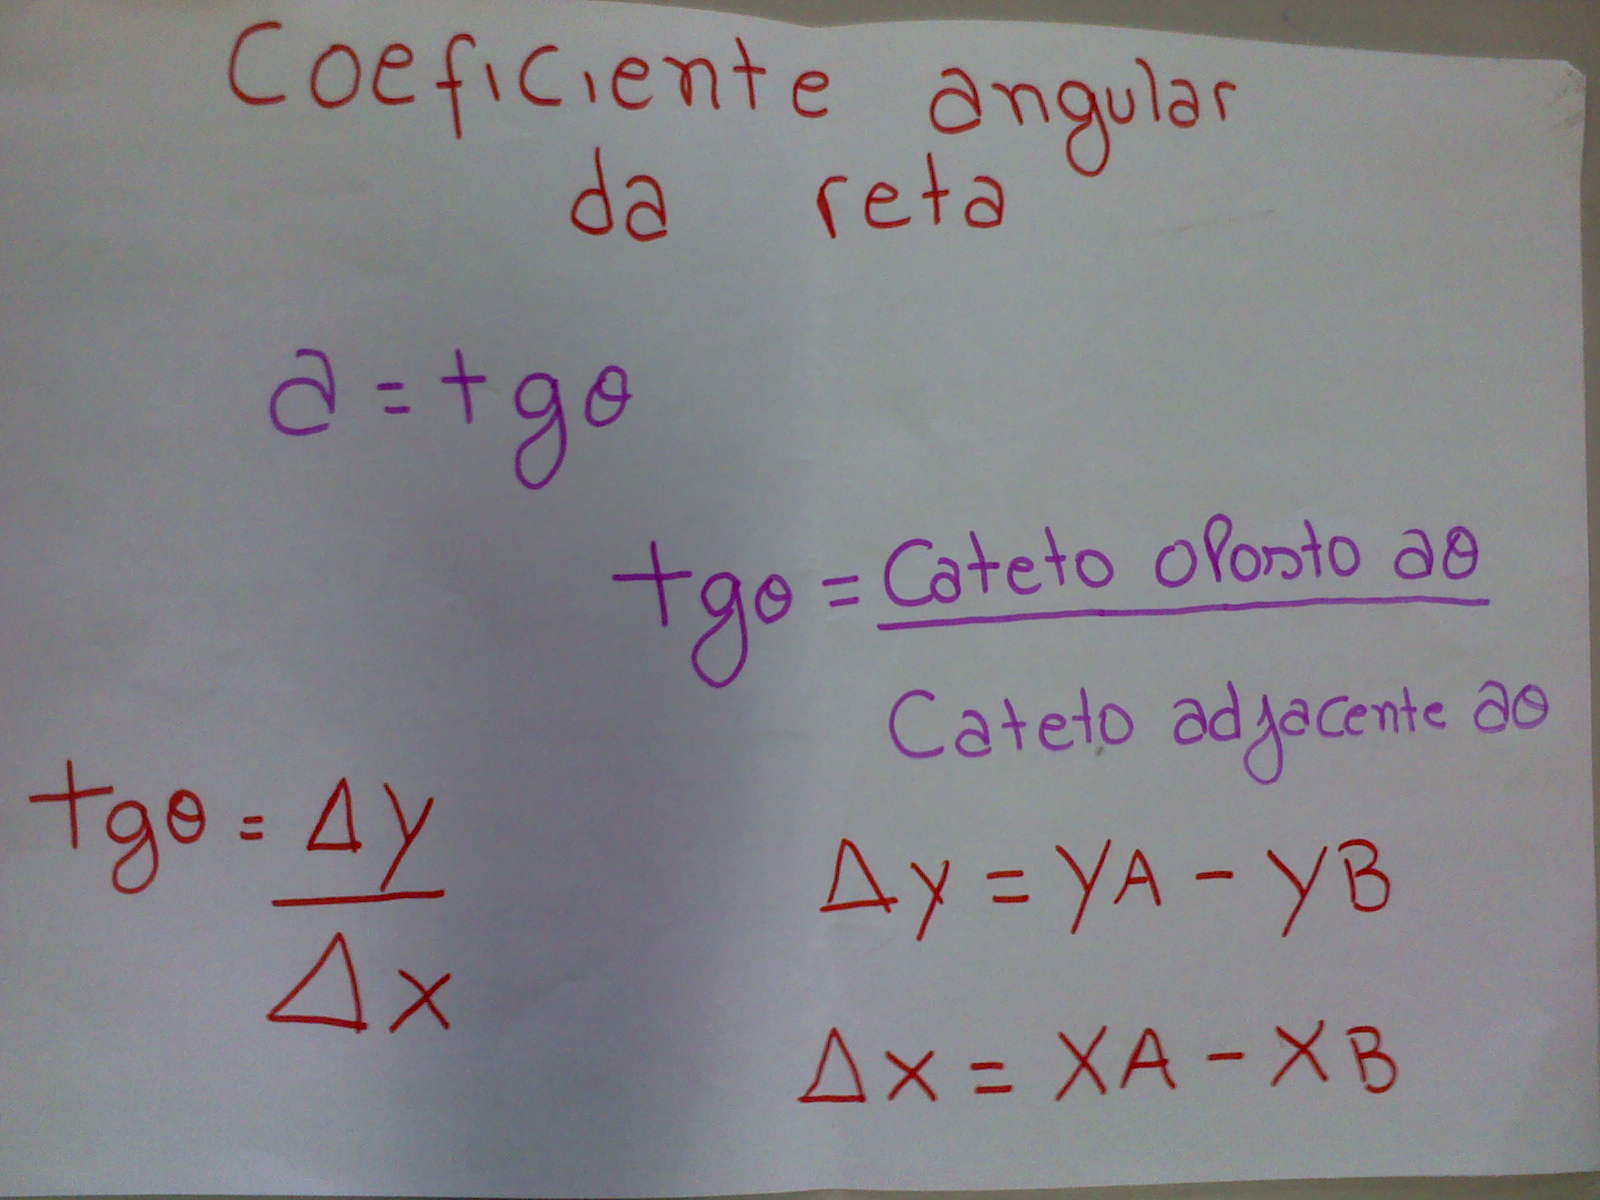 Coeficiente angular
da reta
a = tgθ
tgθ = Cateto oposto aθ
Cateto adjacente aθ
tgθ = Δy
Δx
Δy = yA - yB
Δx = XA - XB